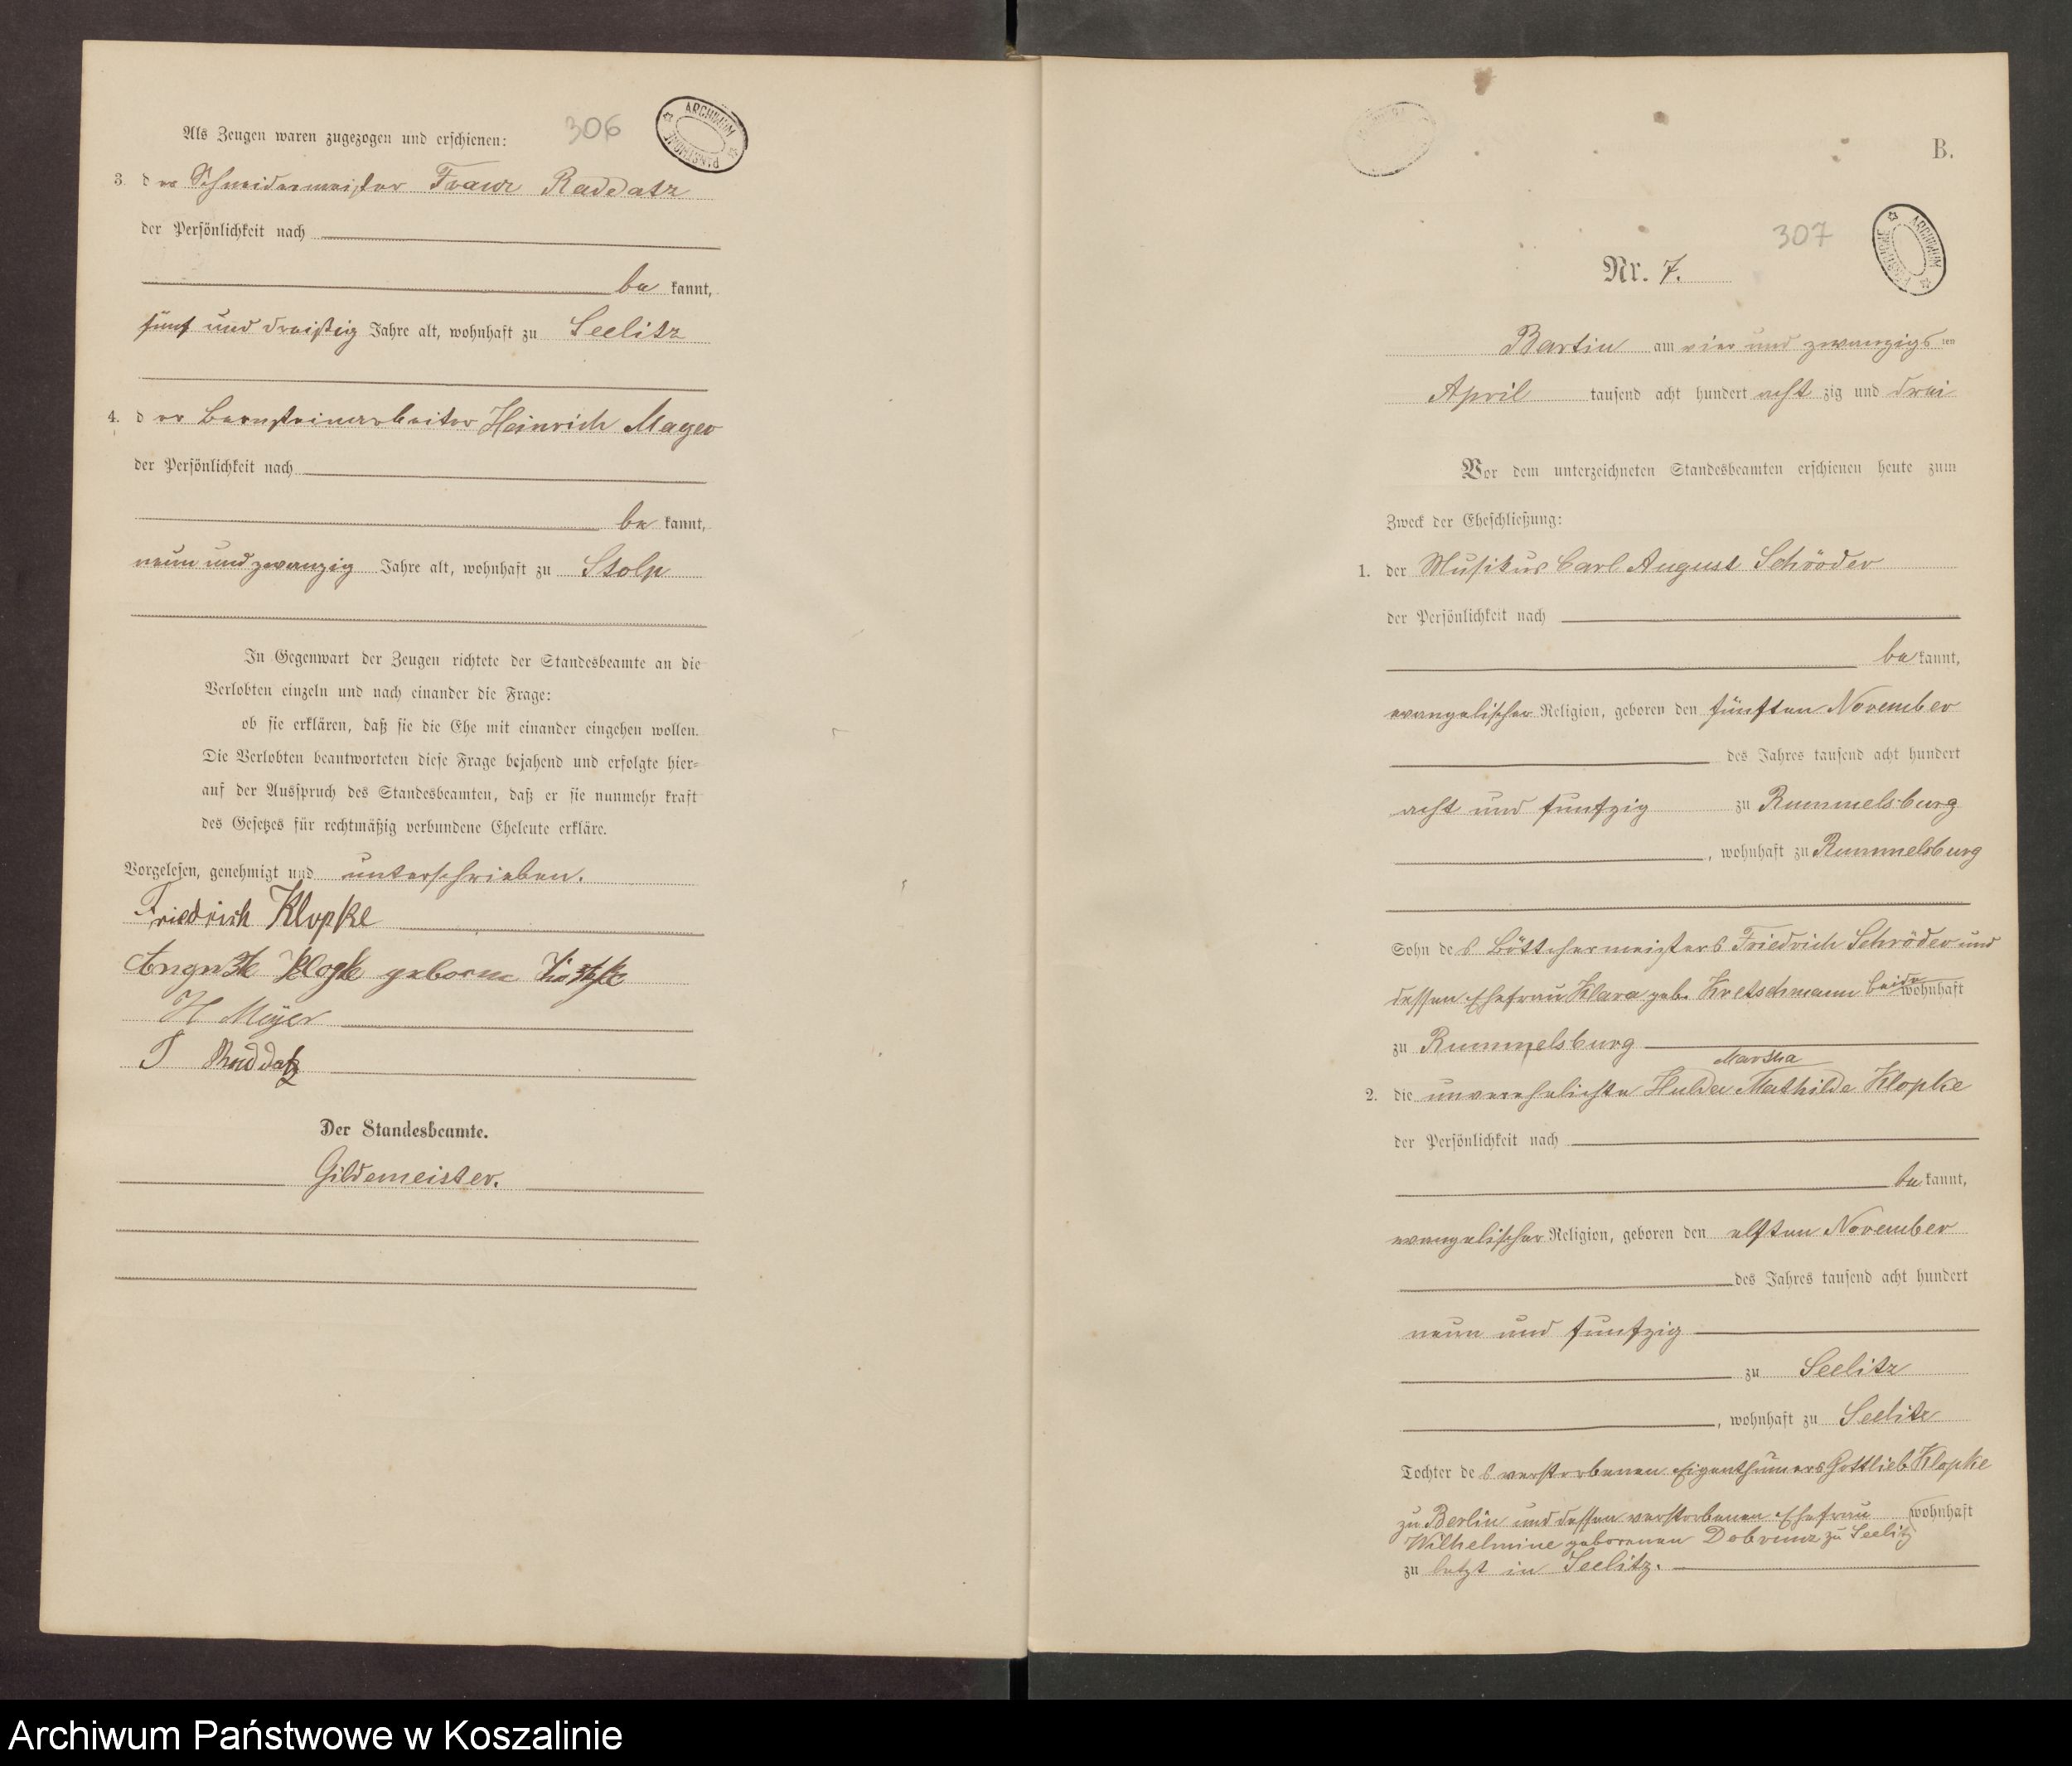 Als Zeugen waren zugezogen und erschienen:
306
ARCHIWUM PAŃSTWOWE
3. der Schneidermeister Franz Raddatz
der Persönlichkeit nach
be kannt,
fünf und dreißig Jahre alt, wohnhaft zu Seelitz
4. der Bernsteinarbeiter Heinrich Mayer
der Persönlichkeit nach
be kannt,
neun und zwanzig Jahre alt, wohnhaft zu Stolp
In Gegenwart der Zeugen richtete der Standesbeamte an die
Verlobten einzeln und nach einander die Frage:
ob sie erklären, daß sie die Ehe mit einander eingehen wollen.
Die Verlobten beantworteten diese Frage bejahend und erfolgte hier-
auf der Ausspruch des Standesbeamten, daß er sie nunmehr kraft
des Gesetzes für rechtmäßig verbundene Eheleute erkläre.
Vorgelesen, genehmigt und unterschrieben.
Friedrich Klopke
geborne
H Meyer
F Raddatz
Der Standesbeamte.
Gildemeister.
B.
307
ARCHIWUM PAŃSTWOWE
Nr. 7.
Bartin am vier und zwanzigsten
April tausend acht hundert acht zig und drei
Vor dem unterzeichneten Standesbeamten erschienen heute zum
Zweck der Eheschließung:
1. der Musikus Carl August Schröder
der Persönlichkeit nach
be kannt,
evangelischer Religion, geboren den fünften November
des Jahres tausend acht hundert
acht und funfzig zu Rummelsburg
, wohnhaft zu Rummelsburg
Sohn des Böttchermeisters Friedrich Schröder und
dessen Ehefrau Klara geb. Kretschmann beide wohnhaft
zu Rummelsburg
Martha
2. die unverehelichte Hulda Mathilde Klopke
der Persönlichkeit nach
be kannt,
evangelischer Religion, geboren den elften November
des Jahres tausend acht hundert
neun und funfzig
zu Seelitz
, wohnhaft zu Seelitz
Tochter des verstorbenen Eigenthümers Gottlieb Klopke
zu Berlin und dessen verstorbenen Ehefrau wohnhaft
Wilhelmine geborenen zu Seelitz
zu letzt in Seelitz.
Archiwum Państwowe w Koszalinie